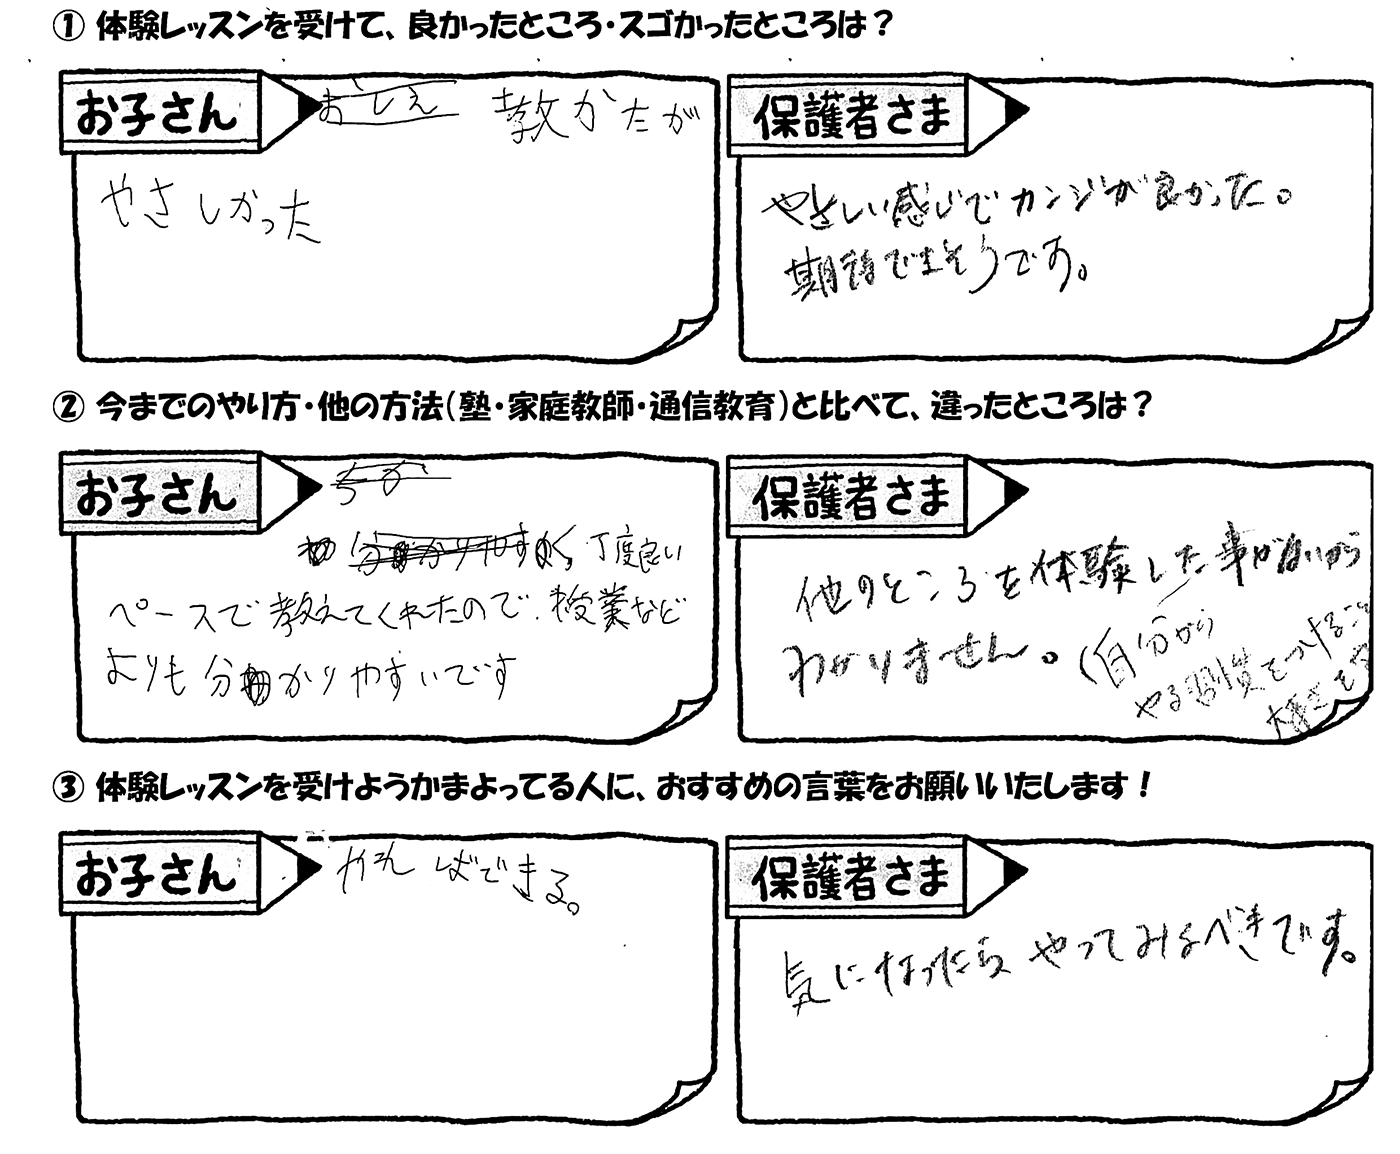 ① 体験レッスンを受けて、良かったところ・スゴかったところは？
お子さん
おしえ 教かたが
やさしかった
保護者さま
やさしい感じでカンジが良かった。
期待できそうです。
② 今までのやり方・他の方法（塾・家庭教師・通信教育）と比べて、違ったところは？
お子さん
ちが
分かりやすく、丁度良い
ペースで教えてくれたので、授業など
よりも分かりやすいです
保護者さま
他のところを体験した事がないから
わかりません。（自分から
やる習慣をつけること
③ 体験レッスンを受けようかまよってる人に、おすすめの言葉をお願いいたします！
お子さん
がんばできる。
保護者さま
気になったらやってみるべきです。